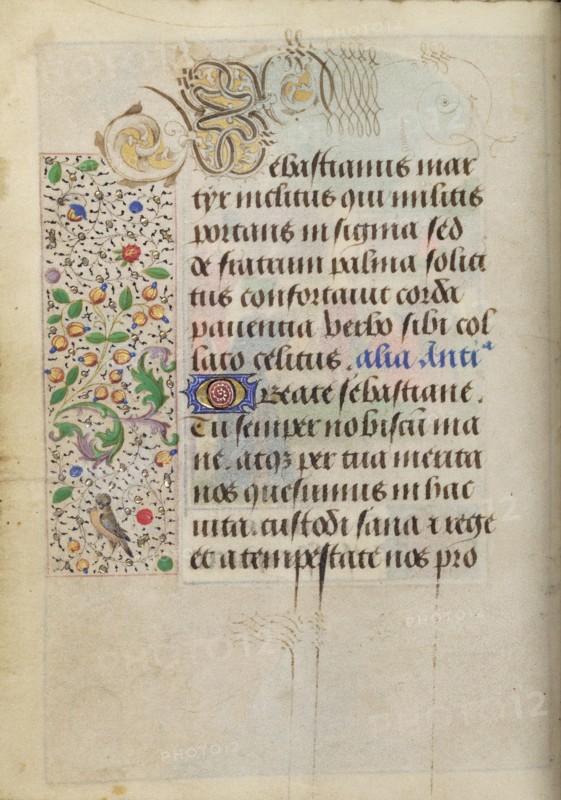 Sebastianus mar
tyr inclitus qui militis
portans insignia sed
de fratrum palma solici
tus confortauit corda
pauentia verbo sibi col
lato celitus. alia Anti a
O Beate sebastiane.
Tu semper nobiscū ma
ne. atqȝ per tua merita
nos quesumus in hac
uita. custodi sana ⁊ rege
et a tempestate nos pro
PHOTO12
PHOTO12
PHOTO12
PHOTO12
PHOTO12